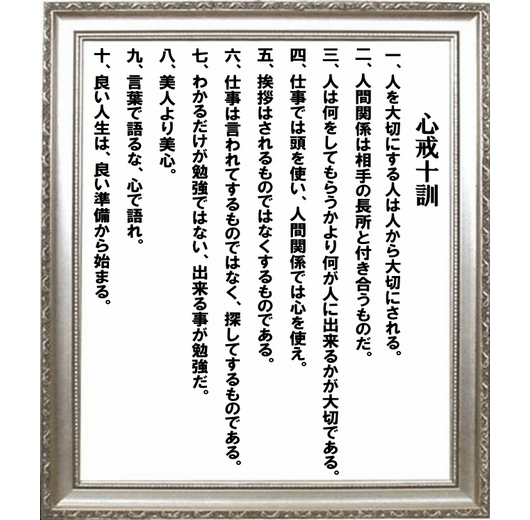 心戒十訓
一、人を大切にする人は人から大切にされる。
二、人間関係は相手の長所と付き合うものだ。
三、人は何をしてもらうかより何が人に出来るかが大切である。
四、仕事では頭を使い、人間関係では心を使え。
五、挨拶はされるものではなくするものである。
六、仕事は言われてするものではなく、探してするものである。
七、わかるだけが勉強ではない、出来る事が勉強だ。
八、美人より美心。
九、言葉で語るな、心で語れ。
十、良い人生は、良い準備から始まる。